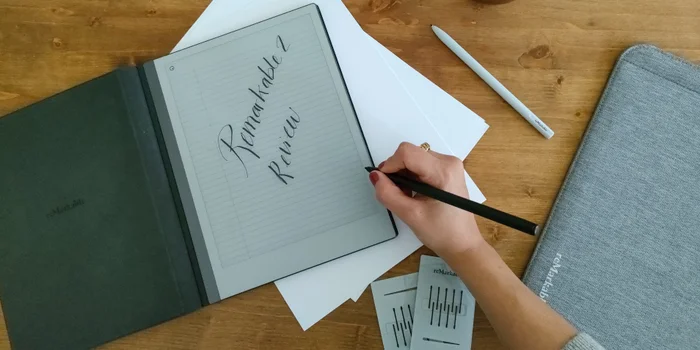 Remarkable 2
Review
reMarkable
reMarkable